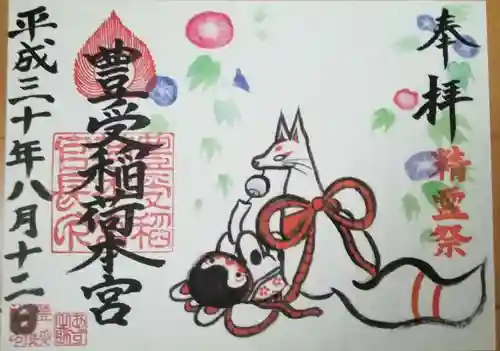 奉拝
精霊祭
豊受稲荷本宮
平成三十年八月十二日